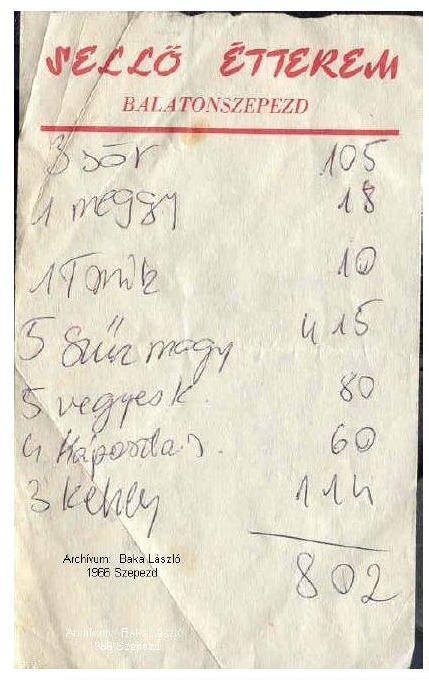 SELLŐ ÉTTEREM
BALATONSZEPEZD
3 sör 105
1 meggy 18
1 Tonik 10
5 Szűz magy 415
5 vegyes k. 80
4 káposta s. 60
3 Kehely 114
802
Archívum: Baka László
1966 Szepezd
Archívum: Baka László
1966 Szepezd